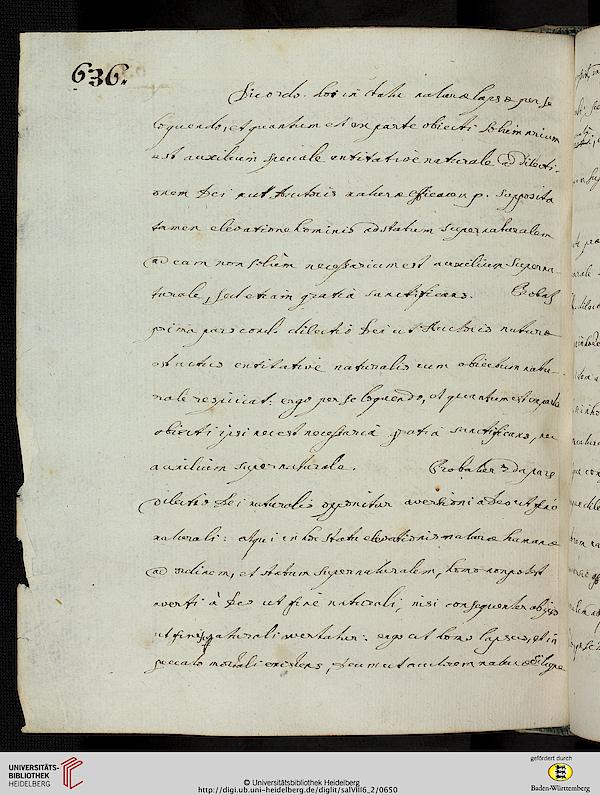 636.
Dico 2do. hoc in statu naturæ lapsæ per se
loquendo, et quantum est ex parte obiecti solum necessarium
est auxilium speciale entitative naturale ad dilecti-
onem Dei ut Authoris naturæ efficacem p. supposita
tamen elevatione hominis ad statum supernaturalem
ad eam non solum necessarium est auxilium superna-
turale, sed etiam gratia sanctificans. Probat
prima pars concl. dilectio Dei ut Authoris naturæ
est actus entitative naturalis cum obiectum natu-
rale respiciat: ergo per se loquendo, et quantum est ex parte
obiecti ipsi nec est necessaria gratia sanctificans, nec
auxilium supernaturale. Probatur 2da pars
dilectio Dei naturalis opponitur aversioni a Deo ut fine
naturali: atqui in hoc statu elevationis naturæ humanæ
ad ordinem, et statum supernaturalem, homo non potest
averti à Deo ut fine naturali, nisi consequenter ab ipso
ut fine supernaturali avertatur: ergo ut homo lapsus, et in
peccato mortali existens, Deum ut auctorem naturæ diligat
UNIVERSITÄTS-
BIBLIOTHEK
HEIDELBERG
© Universitätsbibliothek Heidelberg
http://digi.ub.uni-heidelberg.de/diglit/salVIII6_2/0650
gefördert durch
Baden-Württemberg